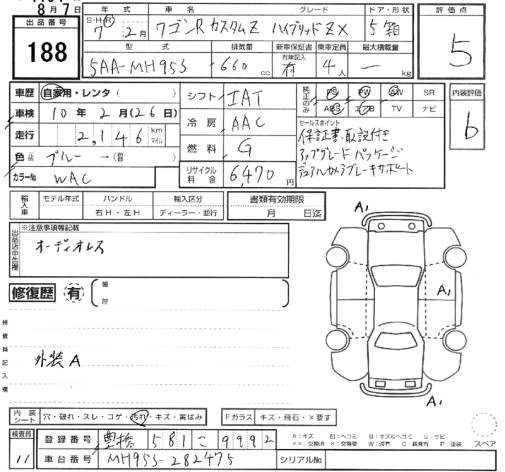 8月7日
出品番号
188
年式 車名 グレード ドア・形状
S・H・R
7年2月 ワゴンR カスタムZ ハイブリッドZX 5 箱
評価点
5
型式 排気量 新車保証書 乗車定員 最大積載量
5AA-MH95S 660cc 有 4人 — kg
有効記入のみ
車歴 自家用・レンタ( )
車検 10年2月(26日)
走行 2,146 km マイル
色 ブルー →(色 )
カラーNo WAC
シフト IAT
冷房 AAC
燃料 G
リサイクル料金 6,470円
純正のみ PS PW AW SR
ABS エアB TV ナビ
セールスポイント
保証書、取説付き
アップグレードパッケージ
デュアルカメラブレーキサポート
内装評価
b
輸入車 モデル年式 ハンドル 輸入区分 書類有効期限
年 右H・左H ディーラー・並行 月 日迄
出品店申告欄
※注意事項等記載
オーディオレス
修復歴 有
箇所
検査員記入欄
外装A
A1 A1
A1
内装シート 穴・破れ・スレ・コゲ・汚れ・キズ・黄ばみ Fガラス キズ・飛石・×要す
検査員
11
登録番号 豊橋 581 こ 9992
A:キズ E:ヘコミ B:キズ&ヘコミ S:サビ
XX:交換済 X:交換要 W:波有 C:腐食有 P:塗装
スペア
車台番号 MH95S-282475 シリアルNo